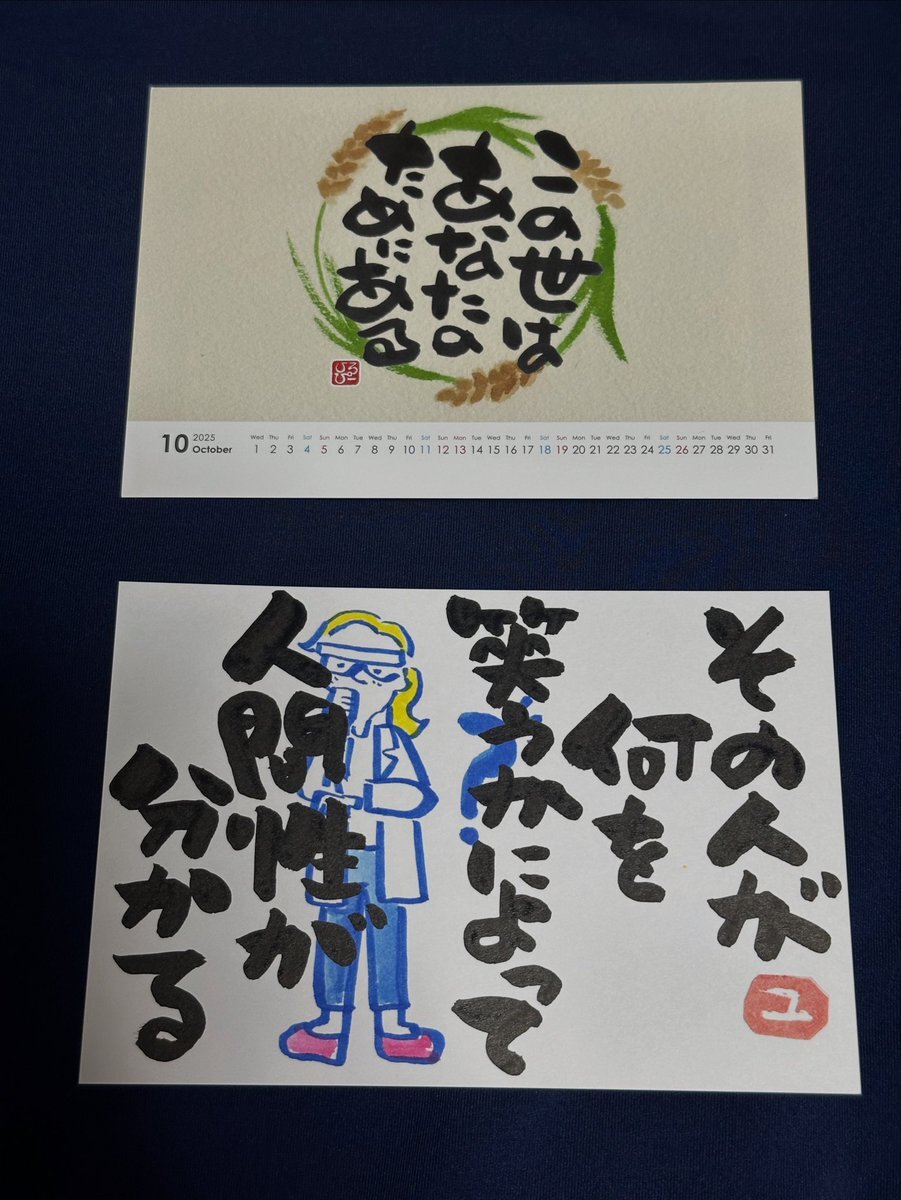 この世は
あなたの
ためにある
ろぴこ
10 2025 October
Wed Thu Fri Sat Sun Mon Tue Wed Thu Fri Sat Sun Mon Tue Wed Thu Fri Sat Sun Mon Tue Wed Thu Fri Sat Sun Mon Tue Wed Thu Fri
1 2 3 4 5 6 7 8 9 10 11 12 13 14 15 16 17 18 19 20 21 22 23 24 25 26 27 28 29 30 31
その人が
何を
笑うかによって
人間性が
分かる
ユ